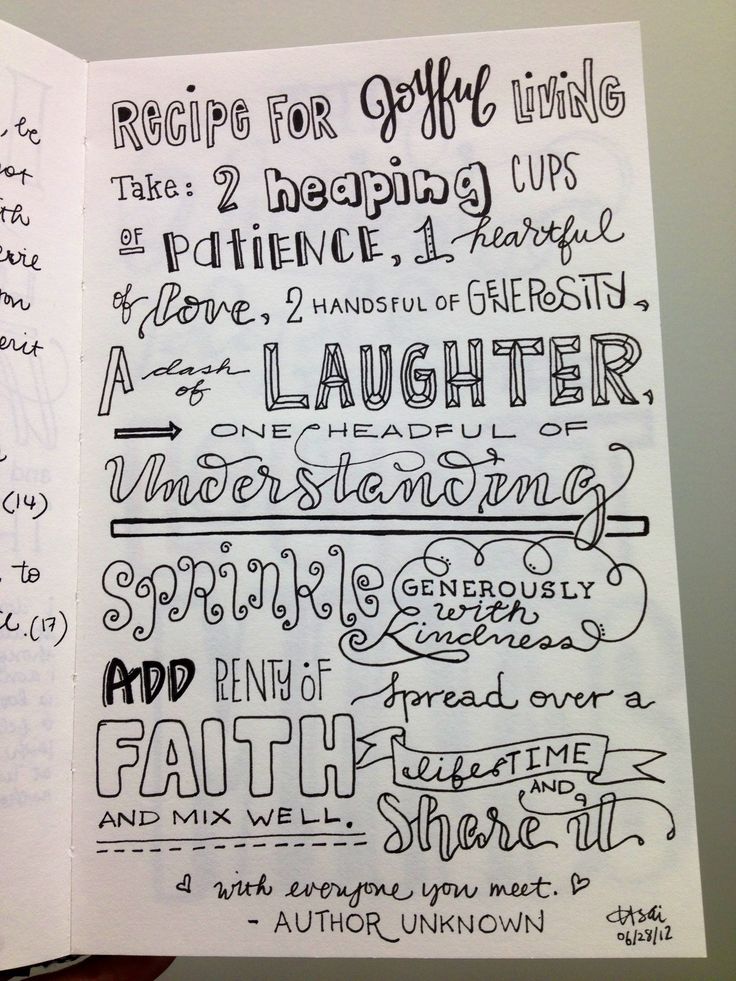 , be
ot
th
on
erit
(14)
, to
(17)
Recipe FOR Joyful Living
Take: 2 heaping CUPS
OF PATIENCE, 1 heartful
of love, 2 HANDSFUL OF GENEROSITY,
A dash of LAUGHTER,
ONE HEADFUL OF
Understanding
SPRINKLE GENEROUSLY
with
Kindness
ADD PLENTY OF
FAITH
AND MIX WELL.
Spread over a
lifeTIME
AND
Share it
with everyone you meet.
- AUTHOR UNKNOWN
06/28/12